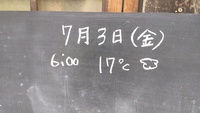 7月3日(金)
6:00 17℃